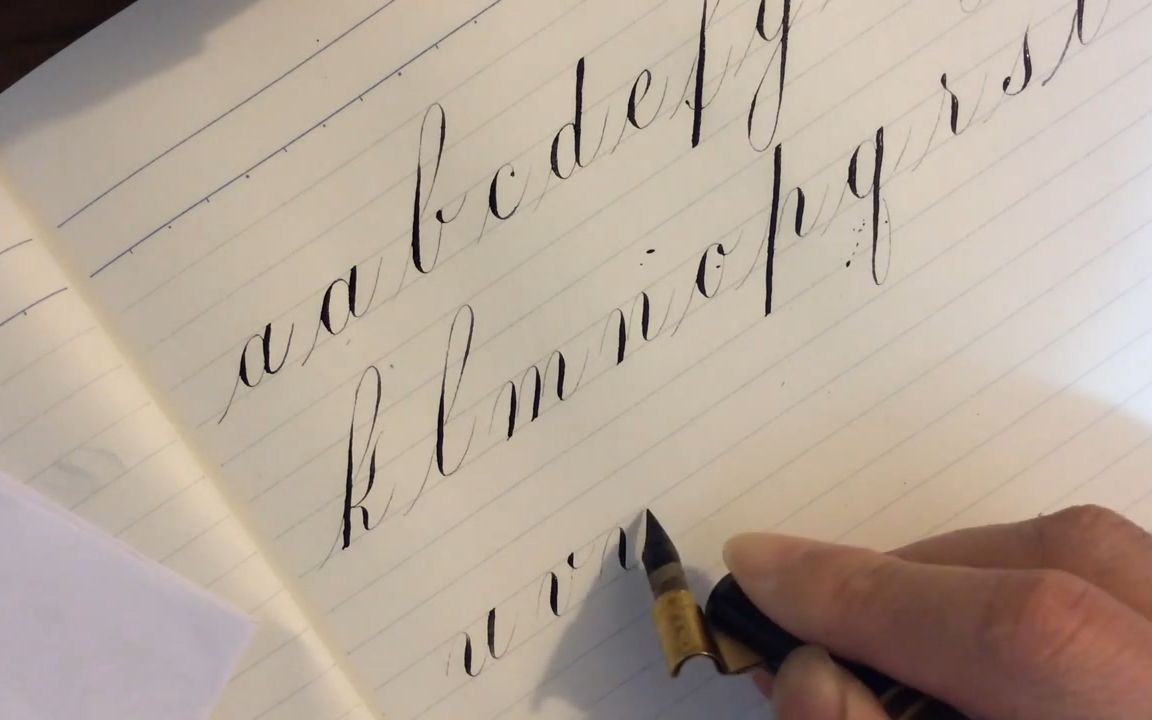 a a b c d e f g
k l m n o p q r s t
u v